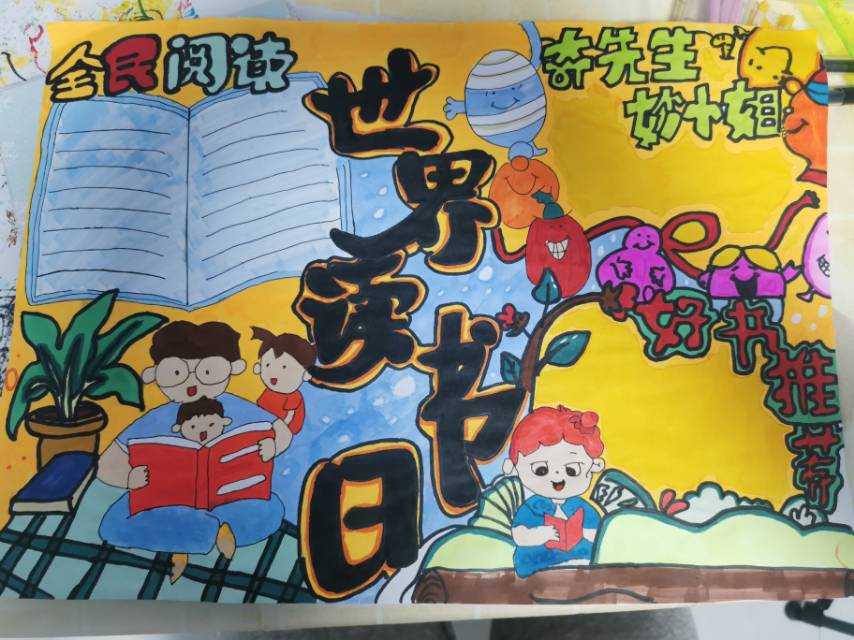 全民阅读
世界读书日
奇先生
妙小姐
好书推荐